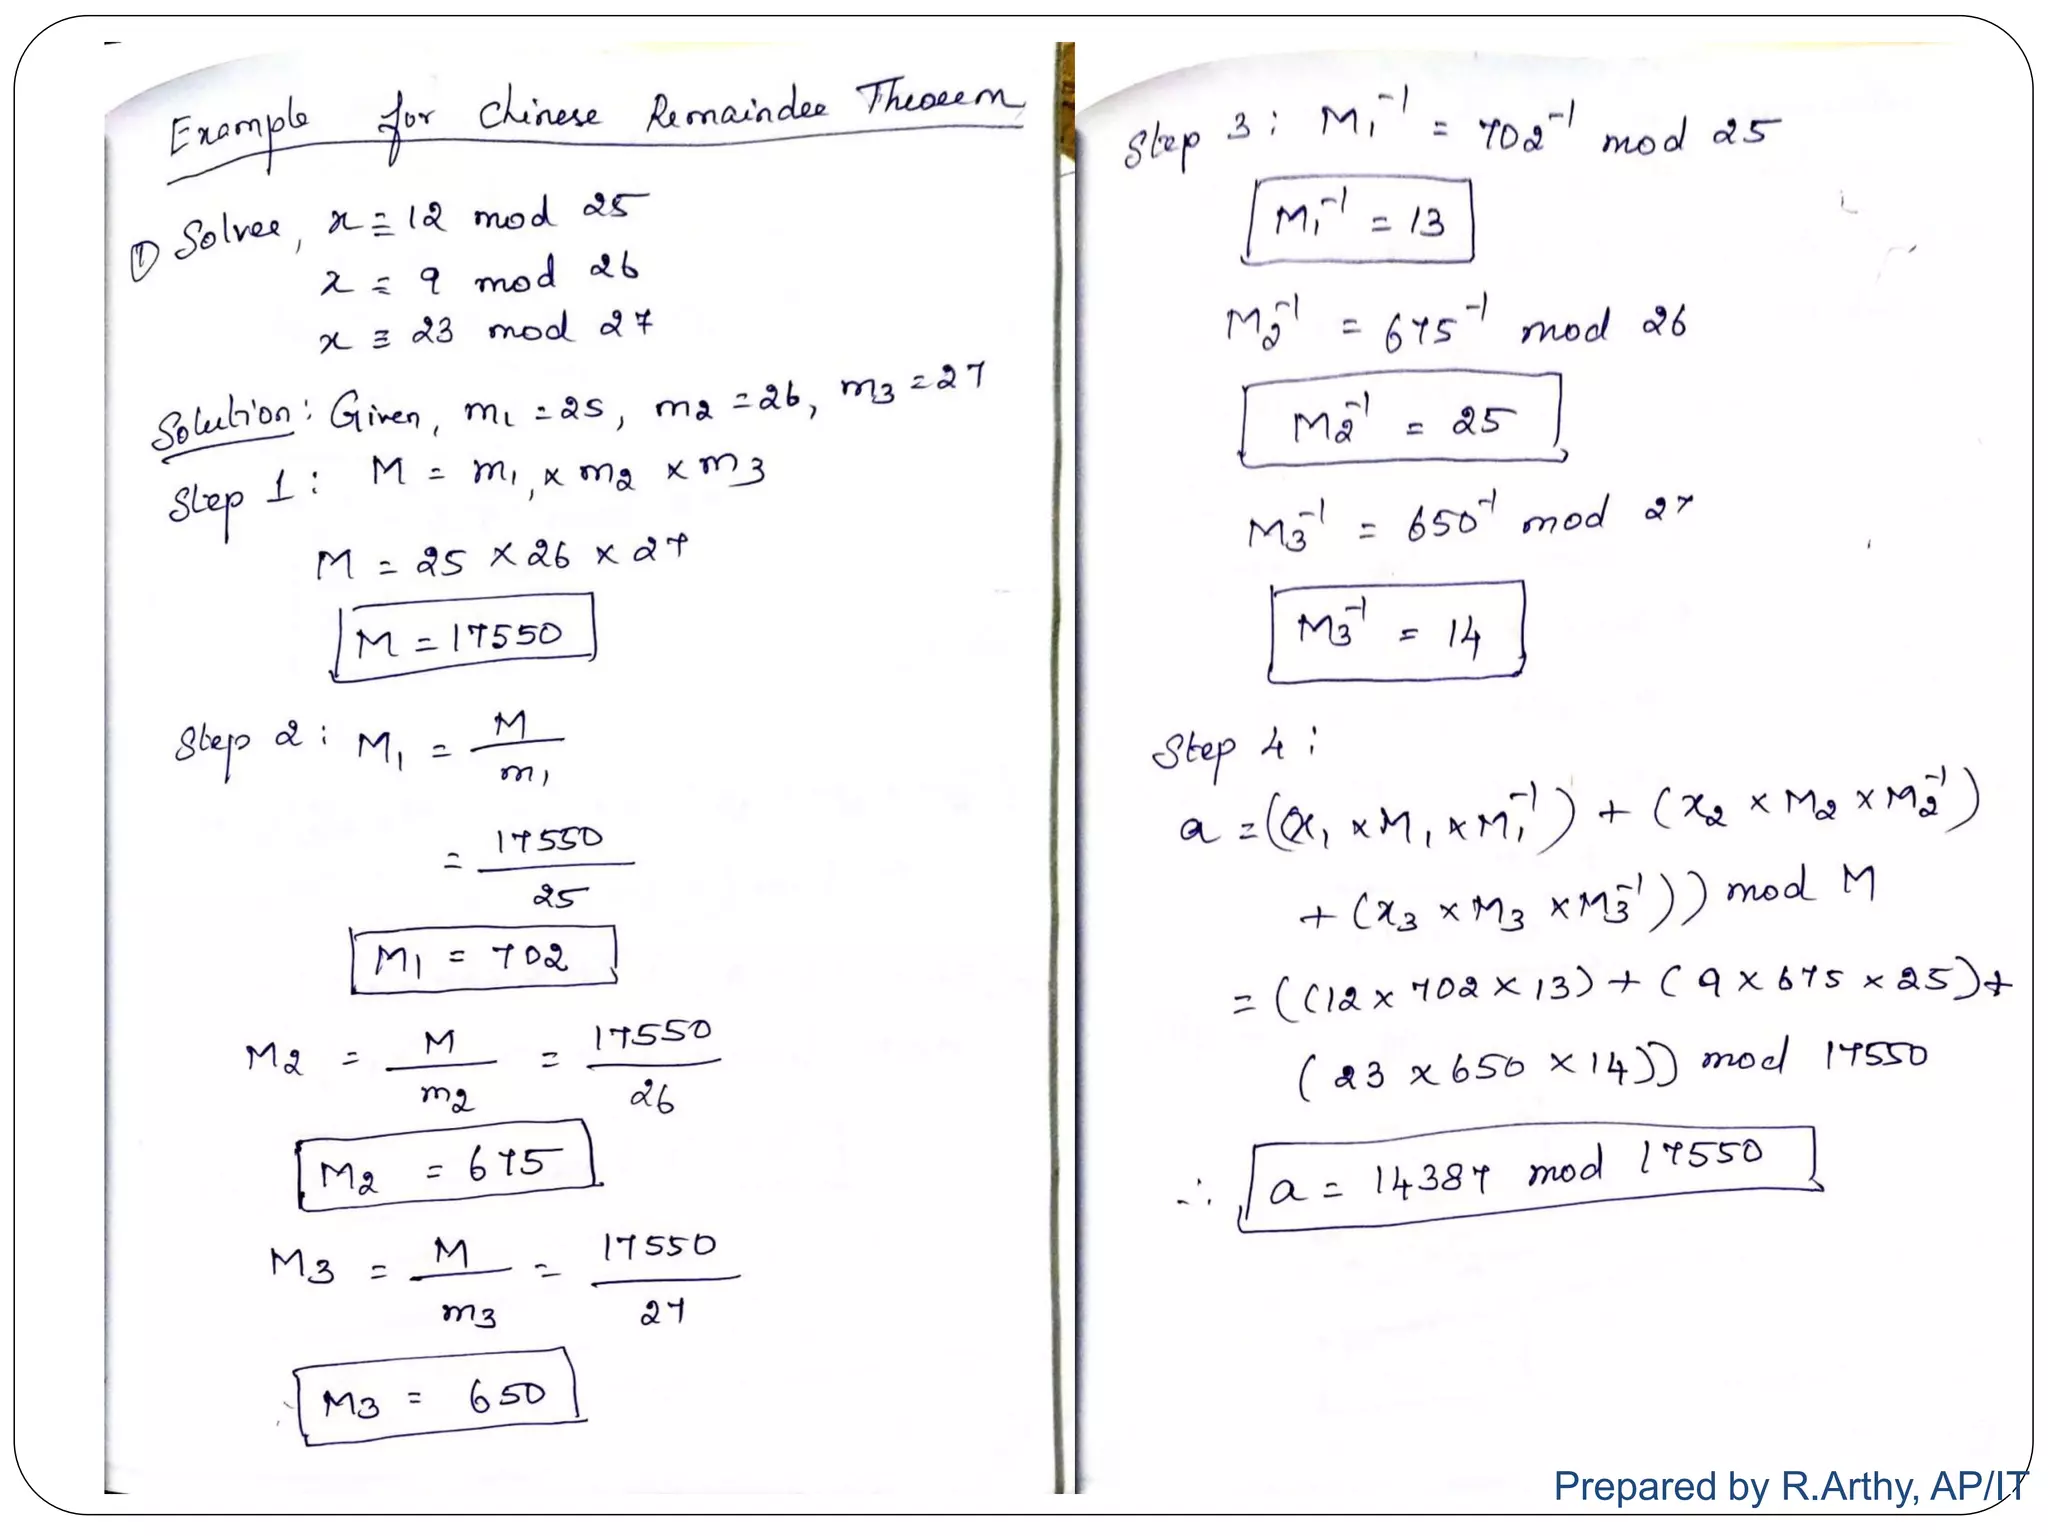 Example for Chinese Remainder Theorem
① Solvee, x ≡ 12 mod 25
x ≡ 9 mod 26
x ≡ 23 mod 27
Solution: Given, m1 = 25, m2 = 26, m3 = 27
Step 1: M = m1 × m2 × m3
M = 25 × 26 × 27
M = 17550
Step 2: M1 = M / m1
= 17550 / 25
M1 = 702
M2 = M / m2 = 17550 / 26
M2 = 675
M3 = M / m3 = 17550 / 27
M3 = 650
Step 3: M1⁻¹ = 702⁻¹ mod 25
M1⁻¹ = 13
M2⁻¹ = 675⁻¹ mod 26
M2⁻¹ = 25
M3⁻¹ = 650⁻¹ mod 27
M3⁻¹ = 14
Step 4:
a = ((x1 × M1 × M1⁻¹) + (x2 × M2 × M2⁻¹)
+ (x3 × M3 × M3⁻¹)) mod M
= ((12 × 702 × 13) + (9 × 675 × 25) +
(23 × 650 × 14)) mod 17550
∴ a = 14387 mod 17550
Prepared by R.Arthy, AP/IT